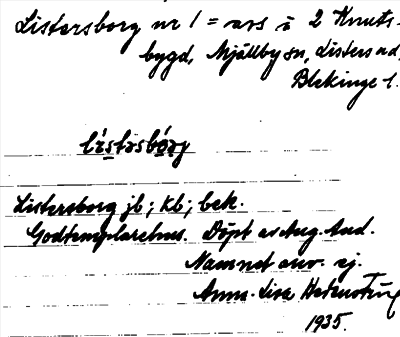 Listersborg nr 1 = avs i 2 Knuts-
bygd, Mjällby sn, Listers hd,
Blekinge l.
lístərsbórg
Listersborg jb; kb; bek.
Godtemplarehus. Döpt av Aug. And.
Namnet anv. ej.
Anna-Lisa
1935.